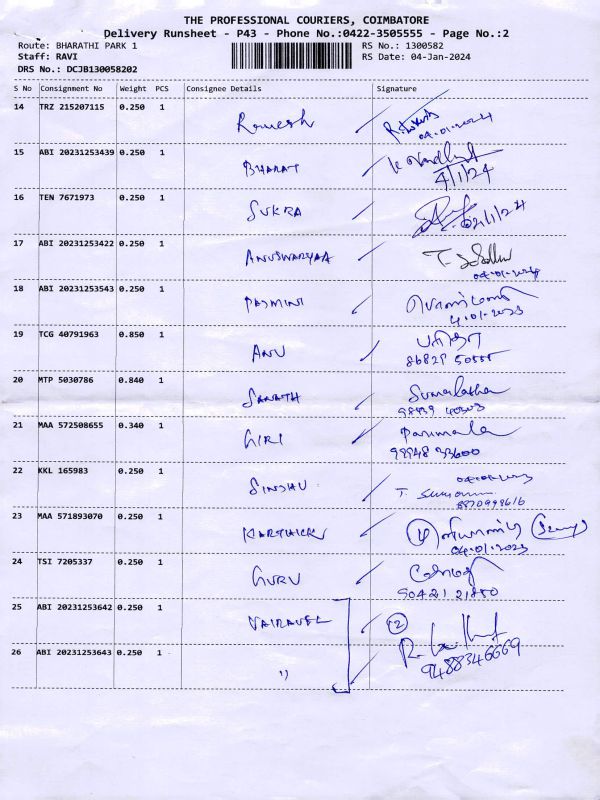 THE PROFESSIONAL COURIERS, COIMBATORE
Delivery Runsheet - P43 - Phone No.:0422-3505555 - Page No.:2
Route: BHARATHI PARK 1 RS No.: 1300582
Staff: RAVI RS Date: 04-Jan-2024
DRS No.: DCJB130058202
S No Consignment No Weight PCS Consignee Details Signature
14 TRZ 215207115 0.250 1 Ramesh
04-01-2024
15 ABI 20231253439 0.250 1 BHARAT
4/1/24
16 TEN 7671973 0.250 1 SUKRA
17 ABI 20231253422 0.250 1
04-01-2024
18 ABI 20231253543 0.250 1 PADMINI
4-01-2023
19 TCG 40791963 0.850 1 ANU
20 MTP 5030786 0.840 1 SARATH Sumalatha
21 MAA 572508655 0.340 1 GIRI Parimala
99948 33600
22 KKL 165983 0.250 1 SINDHU
23 MAA 571893070 0.250 1
04-01-2023
24 TSI 7205337 0.250 1 GURU
90421 21880
25 ABI 20231253642 0.250 1 VAIRAVEL 2
26 ABI 20231253643 0.250 1 "
9488346669